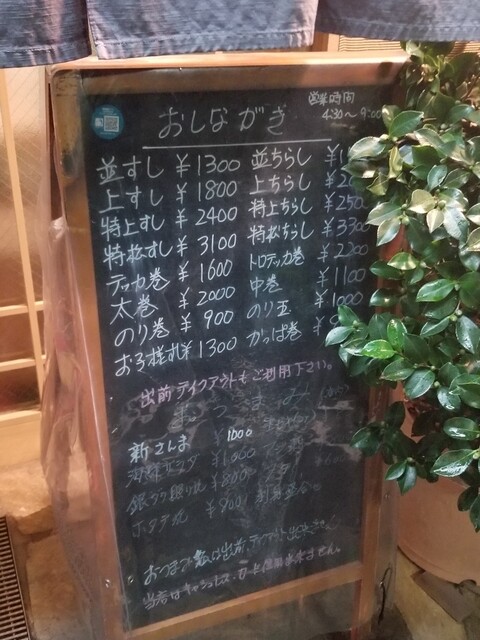 営業時間
4:30〜9:00
おしながき
並すし ¥1300 並ちらし
上すし ¥1800 上ちらし
特上すし ¥2400 特上ちらし
特松すし ¥3100 特松ちらし ¥3300
テッカ巻 ¥1600 トロテッカ巻 ¥2200
太巻 ¥2000 中巻 ¥1100
のり巻 ¥900 のり玉 ¥1000
お子様すし ¥1300 かっぱ巻
出前テイクアウトもご利用下さい。
おつまみ
新さんま ¥1000
¥1000
銀ダラ照り焼 ¥800
ホタテ ¥900
おつまみ 出前、テイクアウト出来ません
当店はキャッシュレス、カード 出来ません。